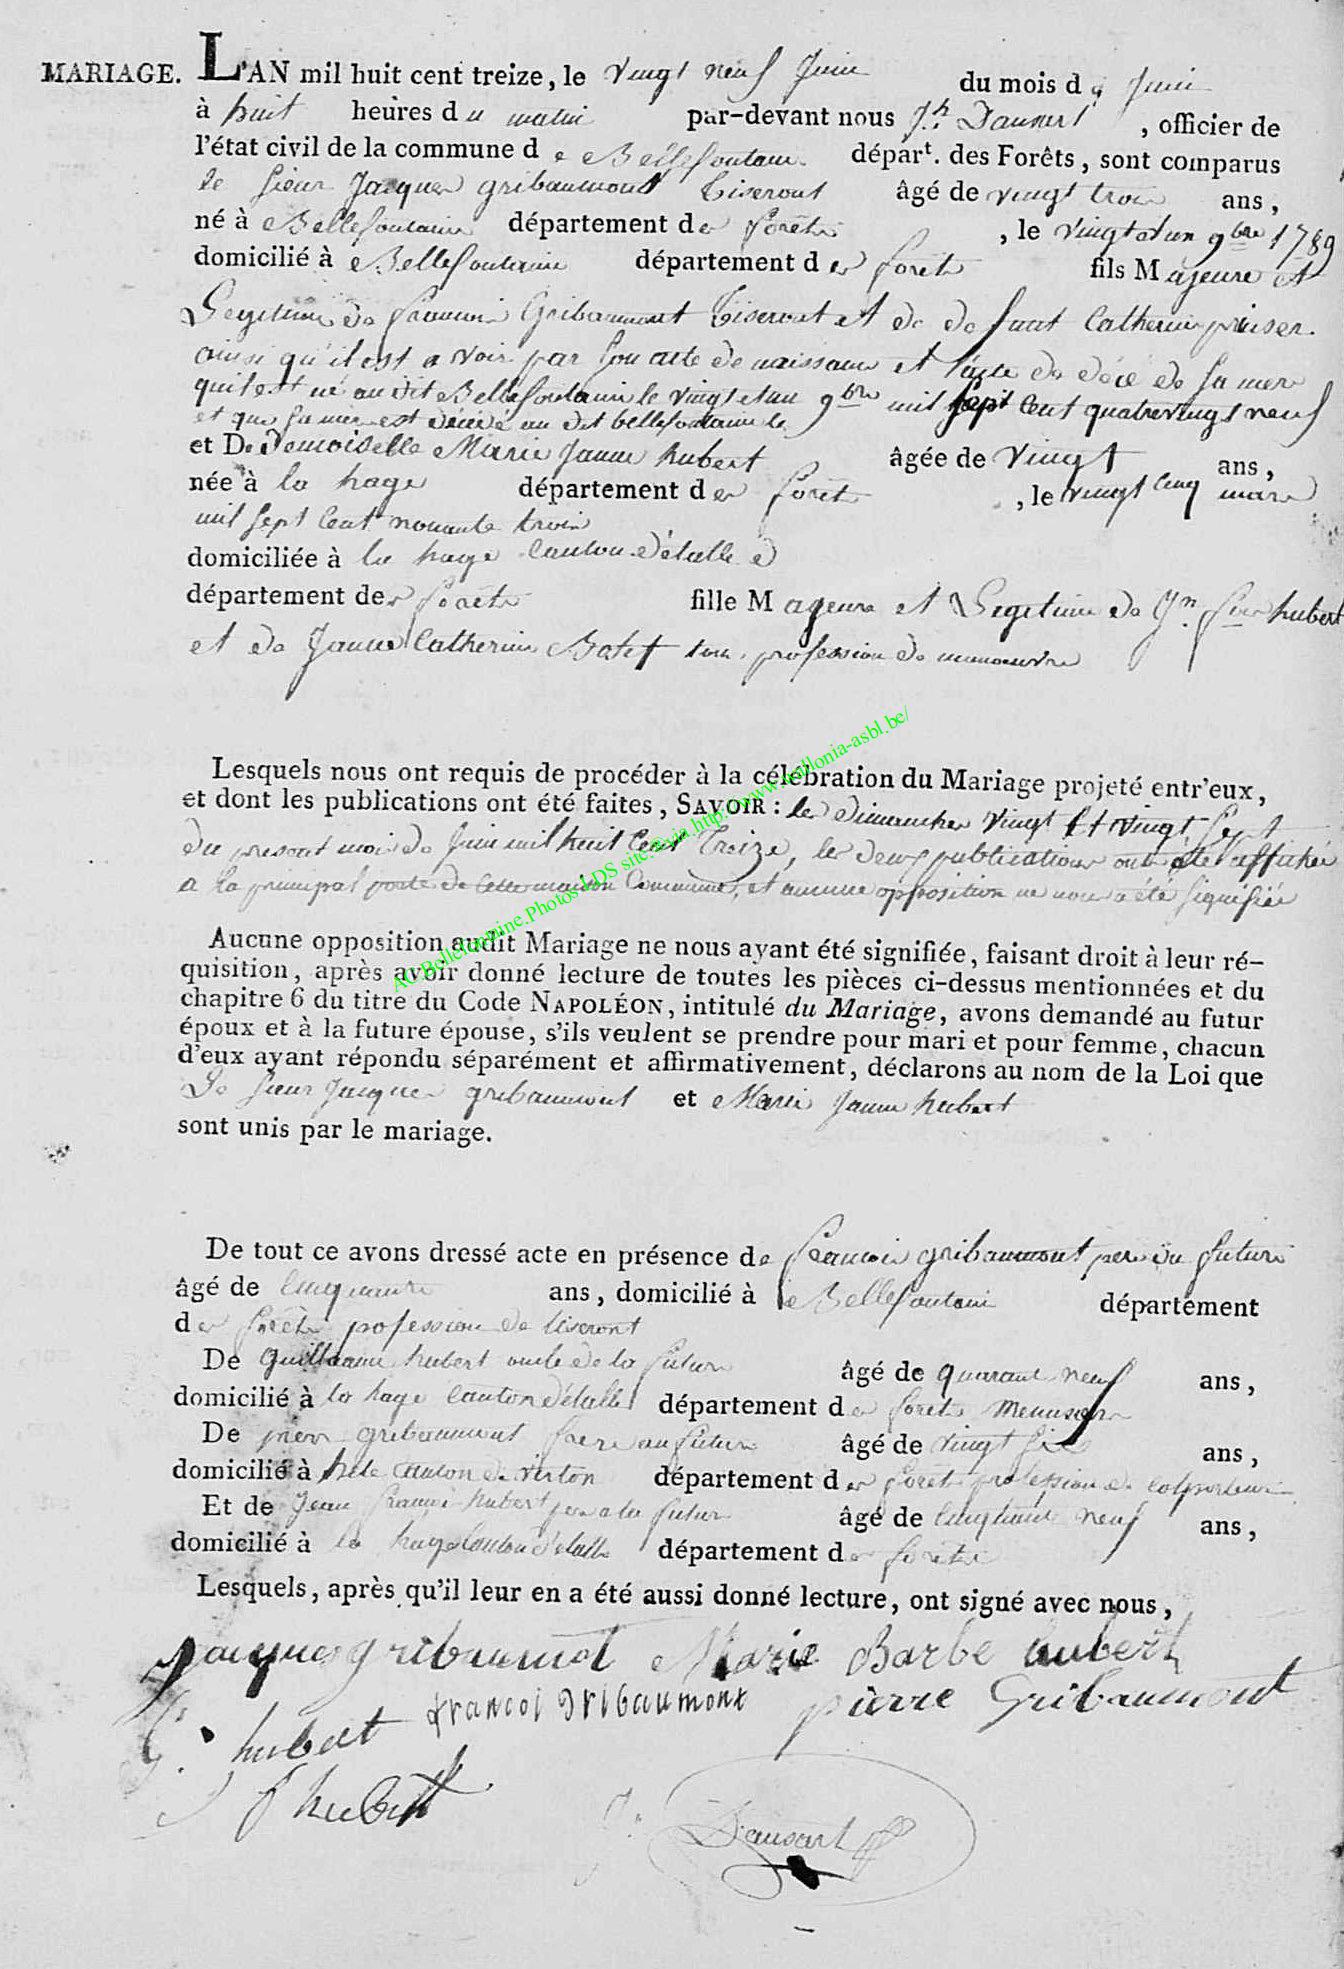 MARIAGE. L'AN mil huit cent treize, le vingt neuf Juin du mois de Juin
à huit heures du matin par-devant nous Jh. Dausart, officier de
l'état civil de la commune de Bellefontaine départ. des Forêts, sont comparus
le sieur Jacques gribaumont tiseront âgé de vingt trois ans,
né à Bellefontaine département des forêts, le vingt et un 9bre 1789
domicilié à Bellefontaine département des forêts fils Majeure et
Legitime de francoi Gribaumont tiseront et de de funt Catherine
ainsi qu'il est a voir par son acte de naissance et l'acte de décé de sa mere
qu'il est né au dit Bellefontaine le vingt et un 9bre mil sept cent quatre vingt neuf
et que sa mere est décédé au dit bellefontaine le
et De Demoiselle Marie Jeanne hubert âgée de vingt ans,
née à la hage département des forêts, le vingt cinq mars
mil sept cent nonante trois
domiciliée à la hage Canton d'étalle
département des forêts fille Mageure et Legetime de Jn. fois hubert
et de Jeanne Catherine profession de manoeuvre
Lesquels nous ont requis de procéder à la célébration du Mariage projeté entr'eux,
et dont les publications ont été faites, SAVOIR : les dimanches vingt et vingt sept
du present mois de Juin mil huit Cent Treize, les deux publications ont été affichée
a la principal porte de cette maison Commune, et aucune opposition ne nous a été signifiée
Aucune opposition audit Mariage ne nous ayant été signifiée, faisant droit à leur ré-
quisition, après avoir donné lecture de toutes les pièces ci-dessus mentionnées et du
chapitre 6 du titre du Code NAPOLÉON, intitulé du Mariage, avons demandé au futur
époux et à la future épouse, s'ils veulent se prendre pour mari et pour femme, chacun
d'eux ayant répondu séparément et affirmativement, déclarons au nom de la Loi que
Le sieur Jacques gribaumont et Marie Jeanne hubert
sont unis par le mariage.
De tout ce avons dressé acte en présence de francois gribaumont pere du futur
âgé de cinquante ans, domicilié à Bellefontaine département
des forêts profession de tiseront
De Guillaume hubert oncle de la future âgé de quarante neuf ans,
domicilié à la hage Canton d'étalle département des forêts menusier
De pierre gribaumont frere au futur âgé de vingt six ans,
domicilié à Canton de virton département des forêts profession de colporteur
Et de Jean francoi hubert pere a la future âgé de cinquante neuf ans,
domicilié à la hage Canton d'étalle département des forêts
Lesquels, après qu'il leur en a été aussi donné lecture, ont signé avec nous,
Jacques gribaumont Marie Barbe hubert
G. hubert francoi Gribaumont pierre Gribaumont
f hubert J. Dausart
AC Bellefontaine.Photos LDS site©via http://www.wallonia-asbl.be/